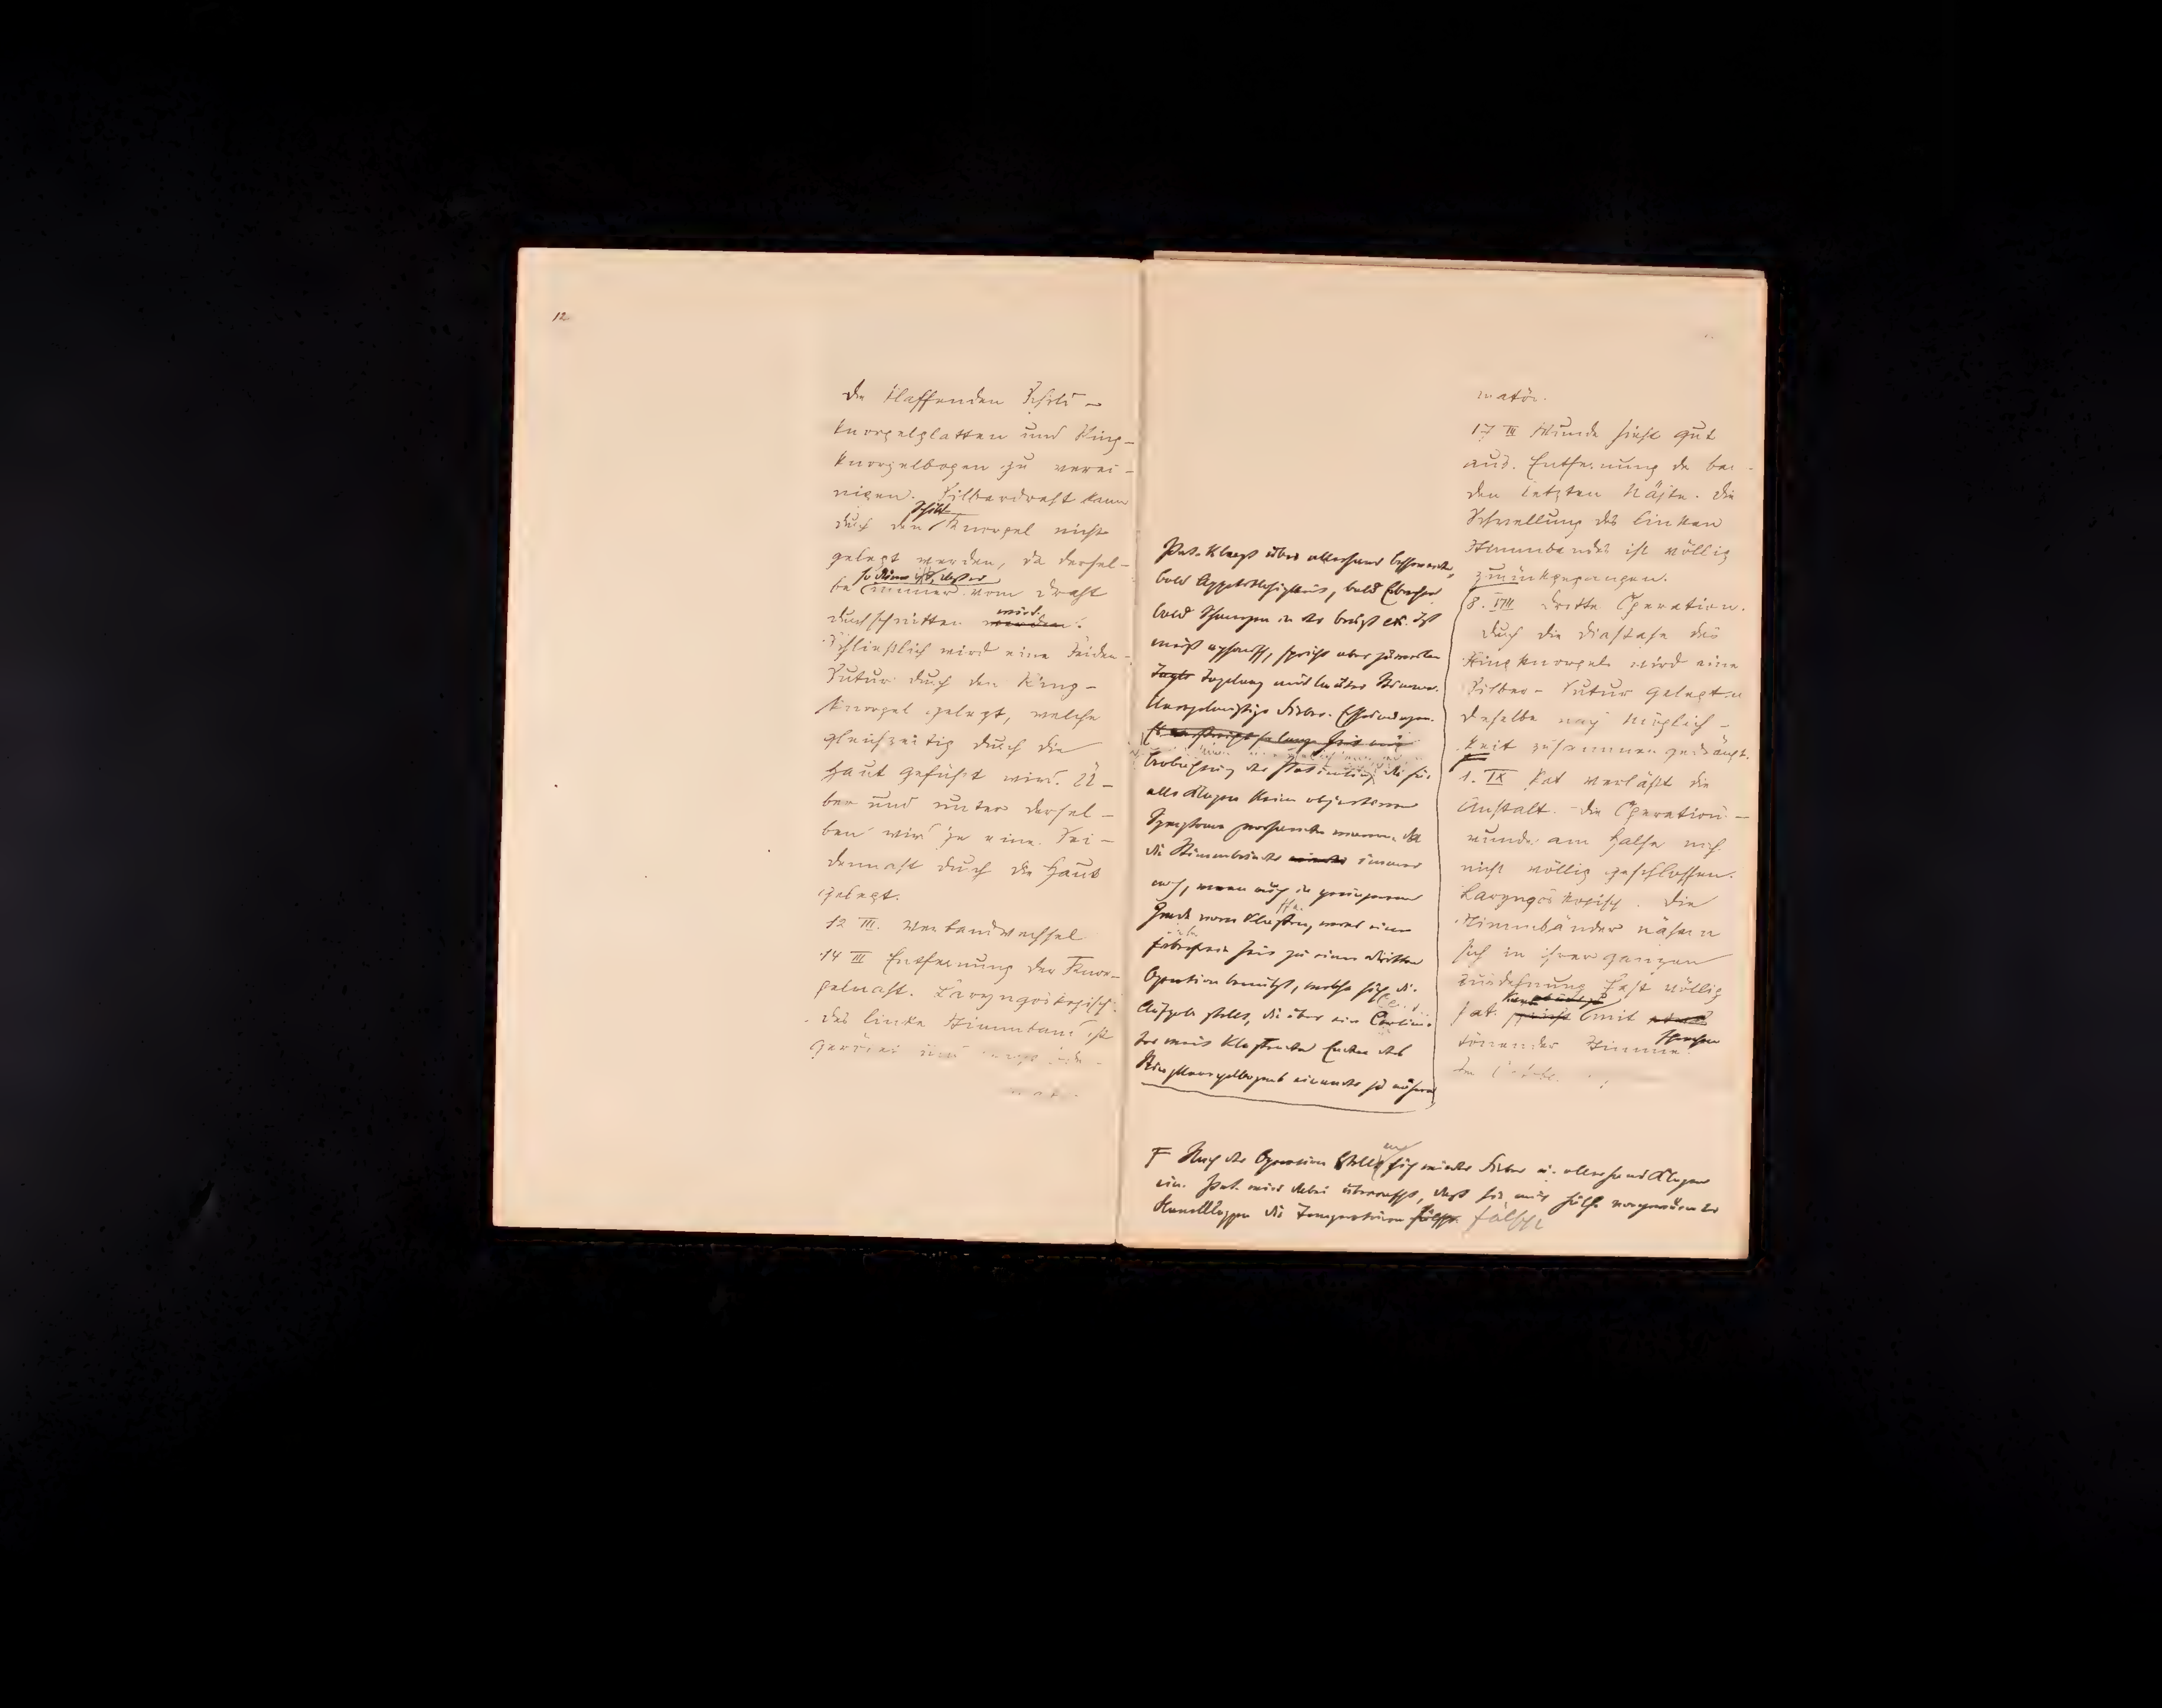 12
die klaffenden Schild-
knorpelplatten und Ring-
knorpelbogen zu verei-
nigen. Silberdraht kann
durch den Schild Knorpel nicht
gelegt werden, da dersel-
be so dünn ist, dass er immer vom Draht
durchschnitten werden wird.
Schließlich wird eine Seiden-
Sutur durch den Ring-
knorpel gelegt, welche
gleichzeitig durch die
Haut geführt wird. Ü-
ber und unter dersel-
ben wird je eine Sei-
dennaht durch die Haut
gelegt.
12 III. Verbandwechsel
14 III Entfernung der Knor-
pelnaht. Laryngoskopisch:
das linke Stimmband ist
gerötet und
Pat. klagt über allerhand
bald Appetitlosigkeit, bald Erbrechen
bald Schmerzen in der Brust etc. Ist
meist aphonisch, spricht aber zuweilen
Tage Tagelang mit lauter Stimme.
Unregelmäßige Fieber-Erscheinungen.
Es verstreicht so lange Zeit mit
Beobachtung der Patientin, die für
alle Klagen keine objectiven
Symptome vorhanden waren. Da
die Stimmbänder wieder immer
noch, wenn auch in geringerem
Grade vorn klafften, wird eine
fieberfreie Zeit zu einer dritten
Operation benutzt, welche sich die
Aufgabe stellt, die über ein Centime-
ter weit klaffenden Enden des
Ringknorpelbogens einander zu nähern
matös.
17 III Wunde sieht gut
aus. Entfernung der bei-
den letzten Nähte. Die
Schwellung des linken
Stimmbandes ist völlig
zurückgegangen.
8. VIII Dritte Operation.
Durch die Diastase des
Ringknorpels wird eine
Silber-Sutur gelegt u
dieselbe nach Möglich-
keit zusammen gedrängt.
1. IX Pat verläßt die
Anstalt. Die Operations-
wunde am Halse noch
nicht völlig geschlossen.
Laryngoskopisch. Die
Stimmbänder nähern
sich in ihrer ganzen
Ausdehnung fast völlig
Pat. spricht kann mit
tönender Stimme sprechen
F Nach der Operation stellt sich wieder Fieber u. allerhand Klagen
ein. Pat. wird dabei überrascht, dass sie mit Hülfe
die Temperaturen fälscht fälscht